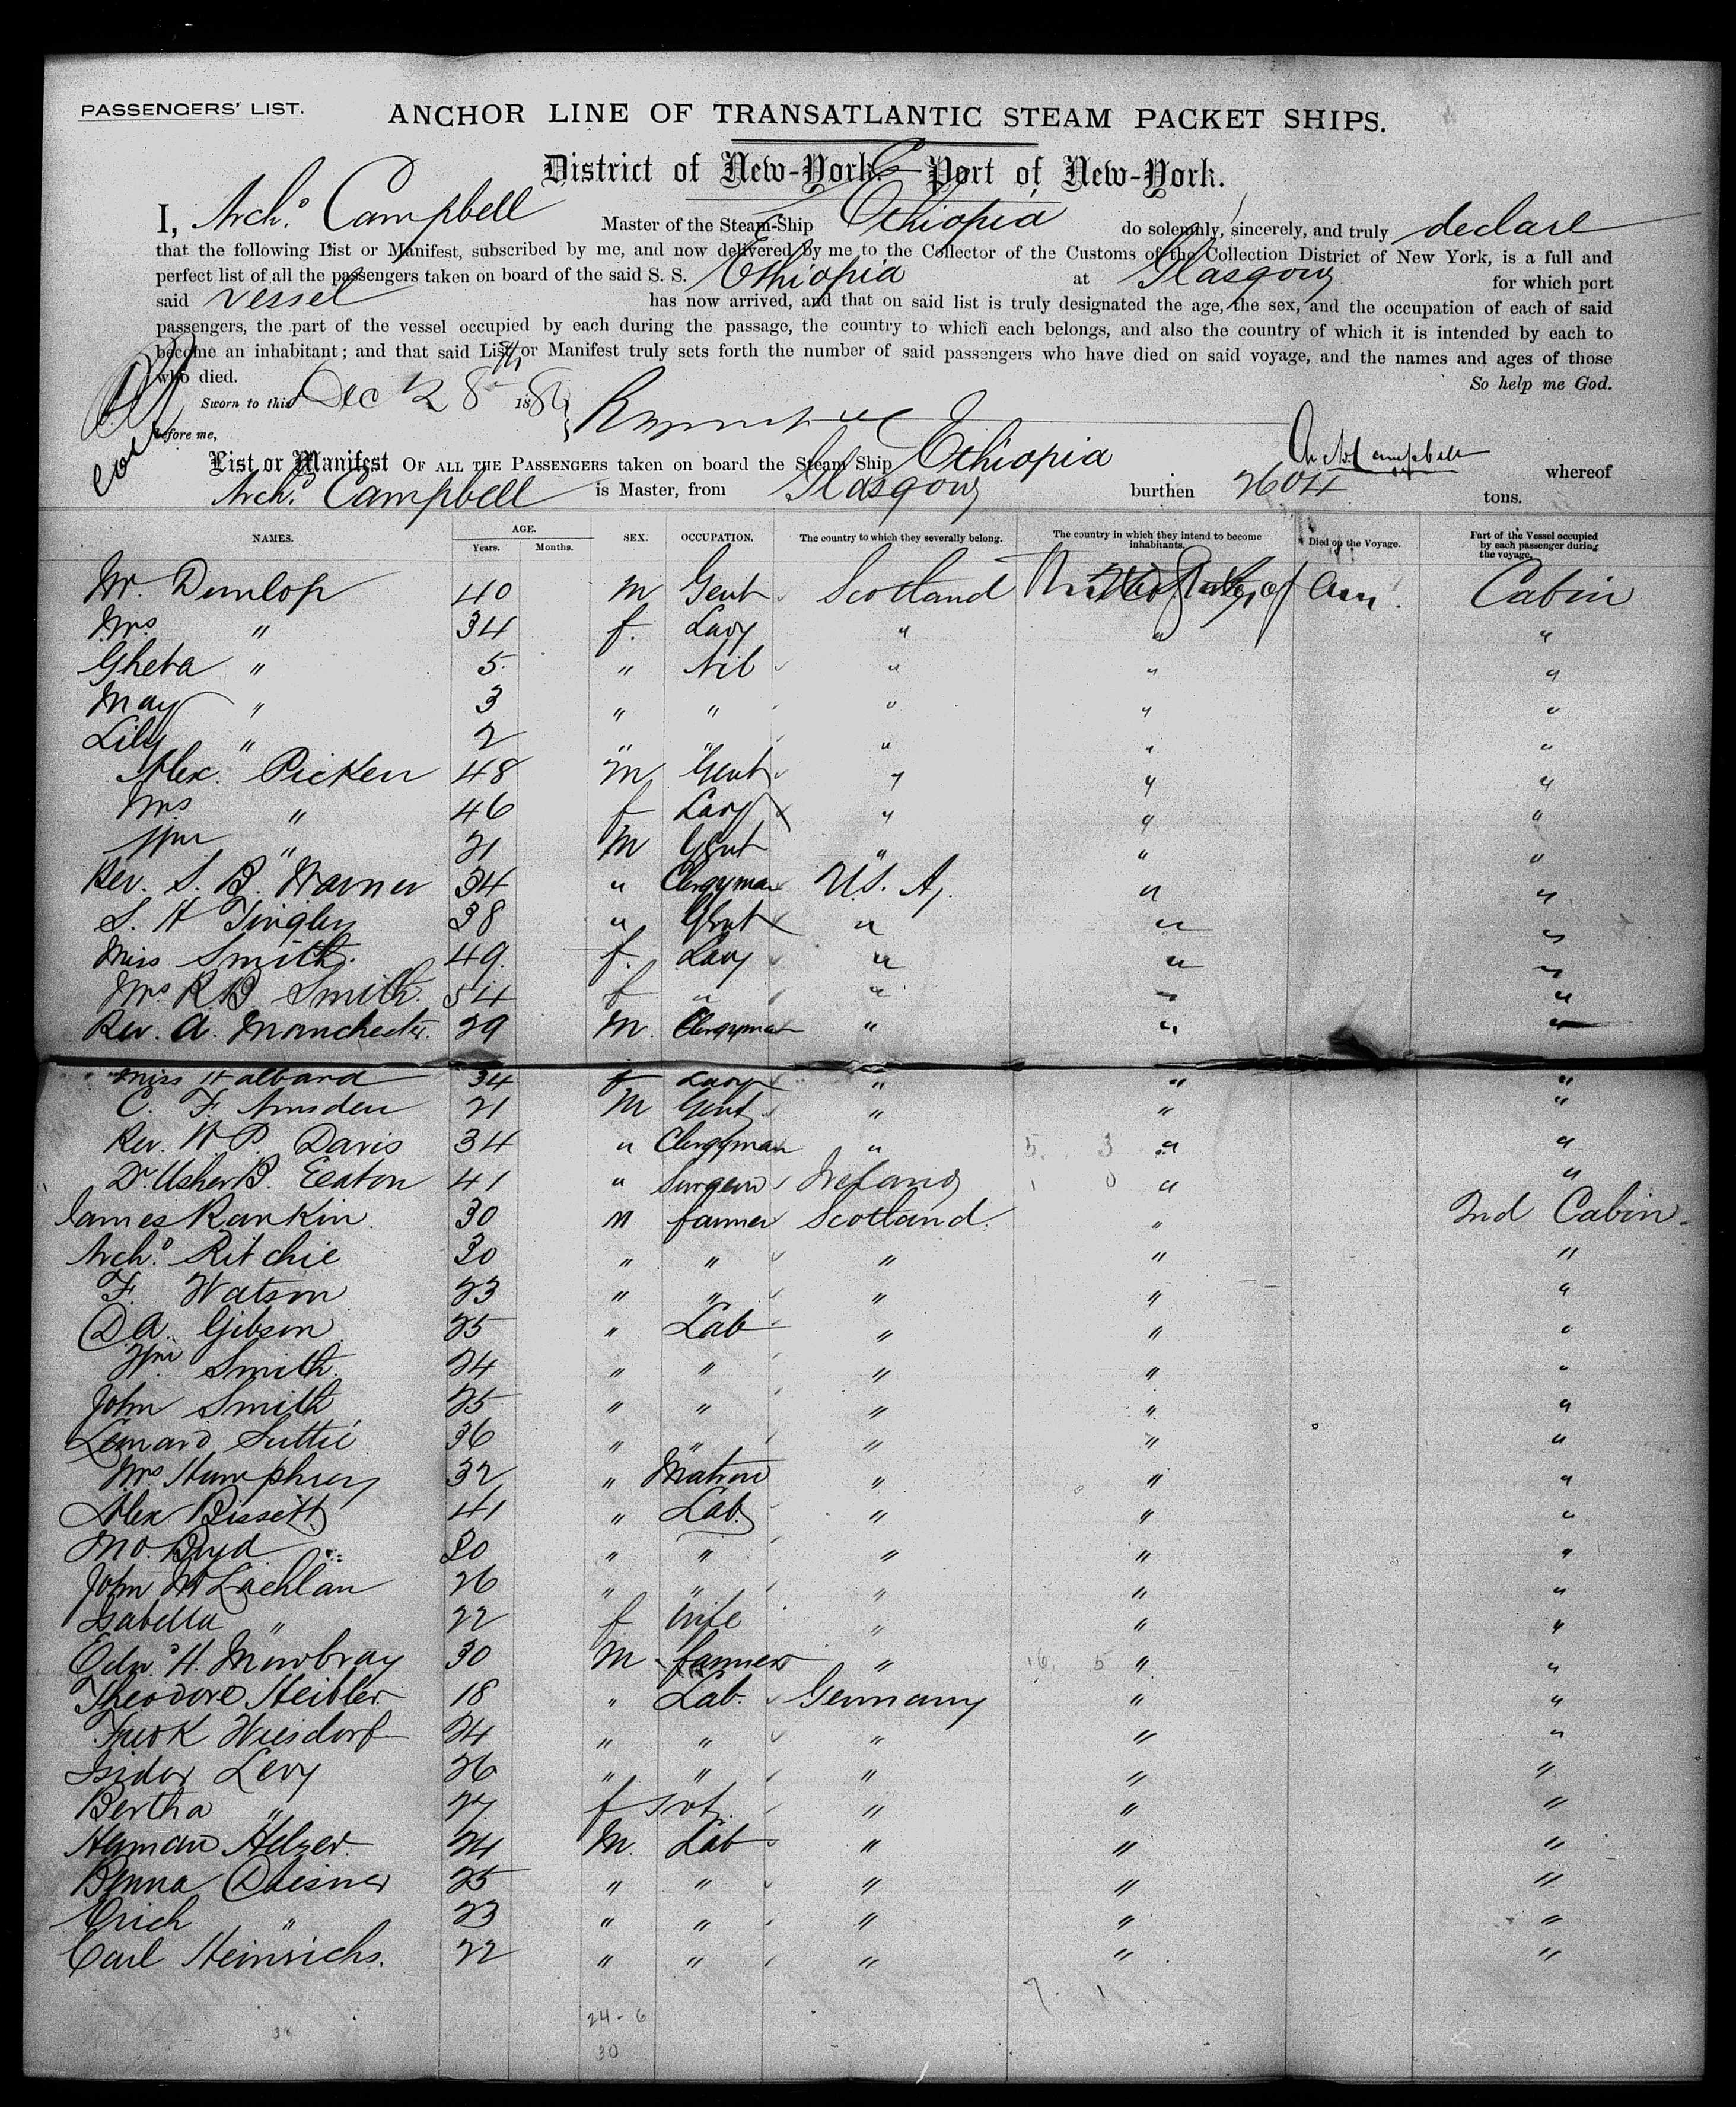 PASSENGERS' LIST.
ANCHOR LINE OF TRANSATLANTIC STEAM PACKET SHIPS.
District of New-York—Port of New-York.
I, Archd. Campbell Master of the Steam-Ship Ethiopia do solemnly, sincerely, and truly declare
that the following List or Manifest, subscribed by me, and now delivered by me to the Collector of the Customs of the Collection District of New York, is a full and
perfect list of all the passengers taken on board of the said S. S. Ethiopia at Glasgow for which port
said vessel has now arrived, and that on said list is truly designated the age, the sex, and the occupation of each of said
passengers, the part of the vessel occupied by each during the passage, the country to which each belongs, and also the country of which it is intended by each to
become an inhabitant; and that said List or Manifest truly sets forth the number of said passengers who have died on said voyage, and the names and ages of those
who died.
So help me God.
Sworn to this Dec 28th 188
before me,
Archd. Campbell
List or Manifest OF ALL THE PASSENGERS taken on board the Steam Ship Ethiopia whereof
Archd. Campbell is Master, from Glasgow burthen 2604 tons.
NAMES. AGE. Years. Months. SEX. OCCUPATION. The country to which they severally belong. The country in which they intend to become inhabitants. Died on the Voyage. Part of the Vessel occupied by each passenger during the voyage.
Mr. Dunlop 40 M Gent Scotland United States of Am. Cabin
Mrs " 34 f. Lady " " "
Gheta " 5 " Nil " " "
May " 3 " " " " "
Lily " 2 " " " " "
Alex. Picken 48 M Gent " " "
Mrs " 46 f Lady " " "
Wm " 21 M Gent " " "
Rev. S. B. Warner 34 " Clergyman U.S. A. " "
S. H Tingley 38 " Gent " " "
Miss Smith. 49. f. Lady " " "
Mrs R B Smith. 54 f " " " "
Rev. A. Manchester. 29 M. Clergyman " " "
Miss Halband 34 f Lady " " "
C. F. Amsden 21 M Gent " " "
Rev. W. P. Davis 34 " Clergyman " " "
Dr. Usher B. Eeaton 41 " Surgeon Ireland " "
James Rankin 30 M farmer Scotland. " 2nd Cabin
Archd. Ritchie 30 " " " " "
F. Watson 23 " " " " "
D. A. Gibson 25 " Lab " " "
Wm Smith. 24 " " " " "
John Smith 25 " " " " "
Leonard Suttie 36 " " " " "
Mrs Humphrey 32 " Matron " " "
Alex Bissett 41 " Lab. " " "
Jno. Boyd 20 " " " " "
John McLachlan 26 " " " " "
Isabella " 22 f Wife " " "
Edwd. H. Mowbray 30 M farmer " " "
Theodore Heibler 18 " Lab. Germany " "
Fredk Wiesdorf 24 " " " " "
Isidor Levy 26 " " " " "
Bertha " 27. f Svt. " " "
Herman Helzer. 24 M. Lab " " "
Benna Dbisner 25 " " " " "
Erich " 23 " " " " "
Carl Heinrichs. 22 " " " " "
7. 1
24 - 6
30